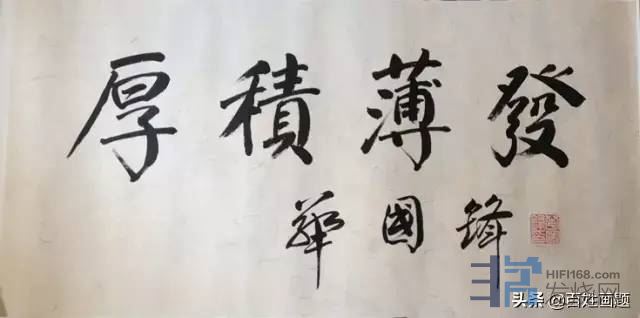 厚積薄發
華國鋒
HIFI168.com
发烧网
头条 @百姓画题